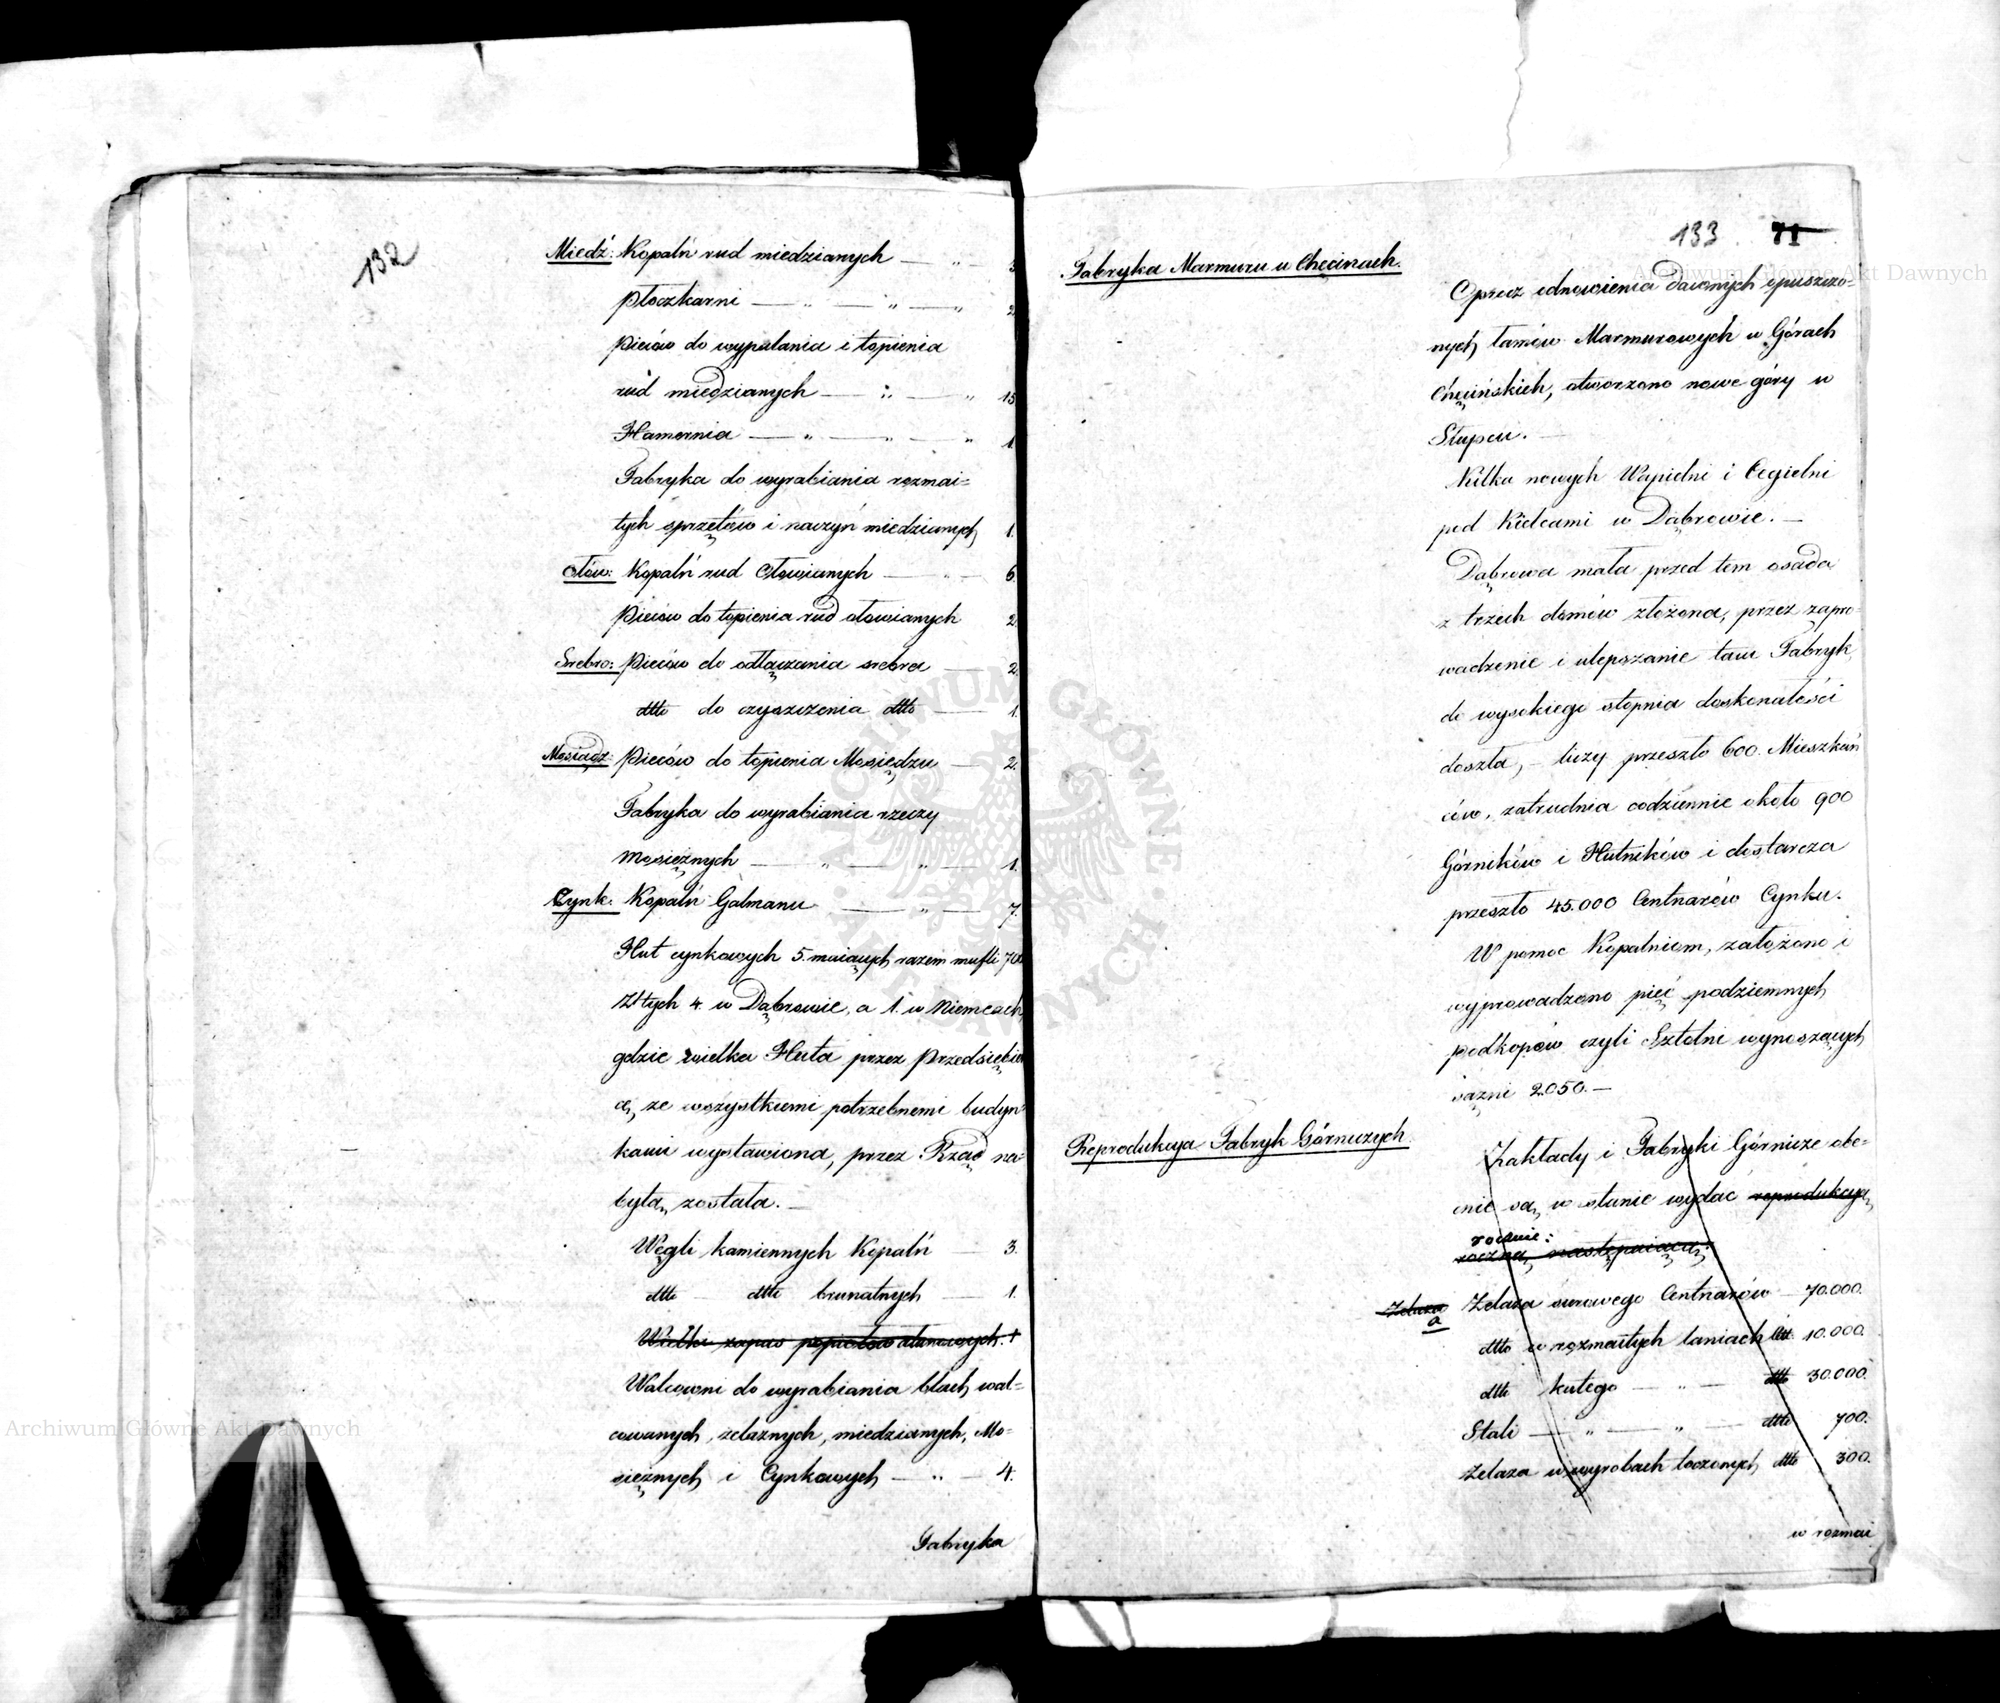 132
Miedź: Kopalń rud miedzianych — „ — 3
Płoczkarni — „ — „ — „ 2
Pieców do wypalania i topienia
rud miedzianych — „ — „ 15
Hamernia — „ — „ — „ 1
Fabryka do wyrabiania rozmai=
tych sprzętów i naczyń miedzianych 1.
Ołów: Kopalń rud Ołowianych — „ — 6
Pieców do topienia rud ołowianych 2.
Srebro: Pieców do odłączania srebra — 2.
dtto do czyszczenia dtto — 1.
Mosiądz: Pieców do topienia Mosiędzu — 2.
Fabryka do wyrabiania rzeczy
Mosiężnych — „ — „ — 1.
Cynk: Kopalń Galmanu — „ — 7.
Hut cynkowych 5. maiących razem mufli
Z tych 4. w Dąbrowie, a 1. w Niemcach,
gdzie wielka Huta przez Przedsiębio
ą, ze wszystkiemi potrzebnemi budyn=
kami wystawiona, przez Rząd na=
bytą została. —
Węgli kamiennych Kopalń 3.
dtto — dtto brunatnych — 1.
Wielki zapas popiołów ałunowych. +
Walcowni do wyrabiania blach wal=
cowanych, żelaznych, miedzianych, Mo=
siężnych i Cynkowych — „ — 4.
Fabryka
133 71
Fabryka Marmuru w Chęcinach.
Oprócz odnowienia dawnych opuszczo=
nych łamów Marmurowych w Górach
Chęcińskich, otworzono nowe góry w
Słupcu. —
Kilka nowych Wapielni i Cegielni
pod Kielcami w Dąbrowie. —
Dąbrowa mała przed tem osada
z trzech domów złożona, przez zapro=
wadzenie i ulepszanie tam Fabryk,
do wysokiego stopnia doskonałości
doszła, — liczy przeszło 600. Mieszkań
ców, zatrudnia codziennie około 900
Górników i Hutników i dostarcza
przeszło 45.000 Centnarów Cynku.
W pomoc Kopalniom, założono i
wyprowadzono pięć podziemnych
podkopów czyli Sztolni wynoszących
sążni 2050. —
Reprodukcya Fabryk Górniczych.
Zakłady i Fabryki Górnicze obe=
cnie są, w stanie wydać reprodukcyą,
rocznie:
roczną, następuiącą:
Żelaza
a
Żelaza surowego Centnarów — 70.000.
dtto w rozmaitych laniach dtt. 10.000.
dtto kutego — „ — dtto 30.000.
Stali — „ — „ — dtto 700.
Żelaza w wyrobach toczonych dtto 300.
w rozmai
Archiwum Główne Akt Dawnych
Archiwum Główne Akt Dawnych